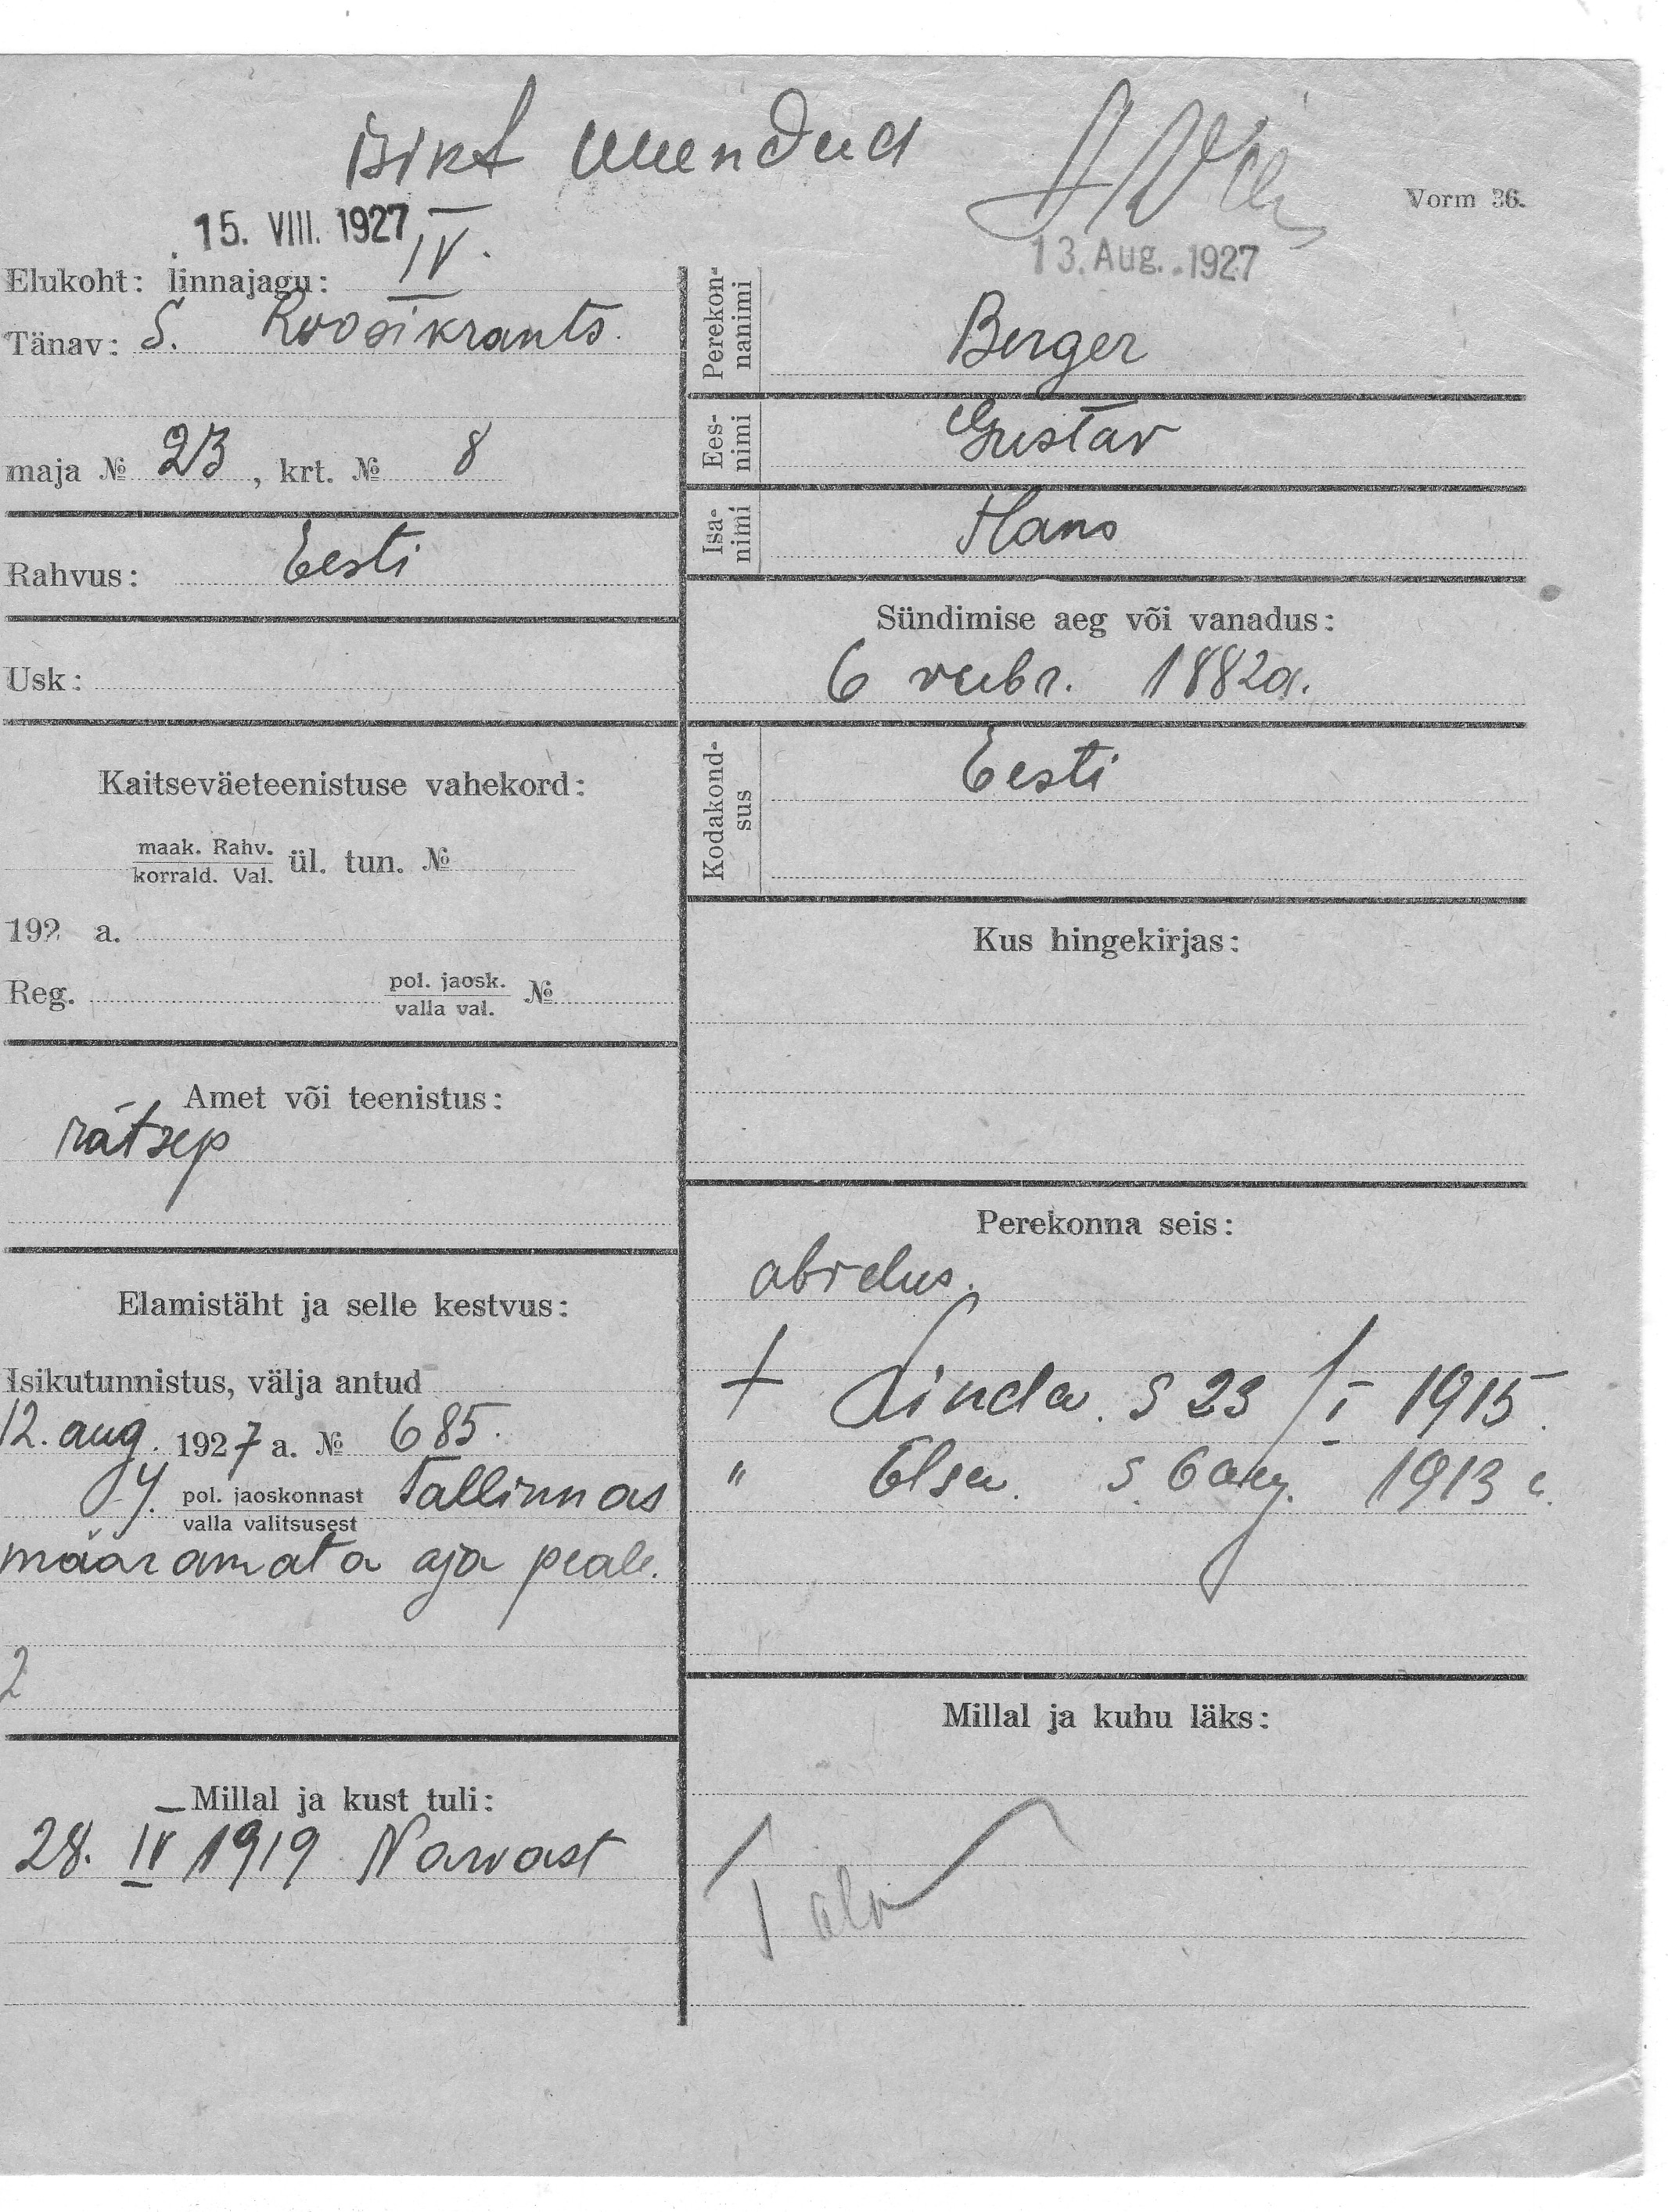 isikt uuendud
Vorm 36.
15. VIII. 1927
13. Aug. 1927
Elukoht: linnajagu: IV.
Tänav: S. Roosikrants.
maja № 23, krt. № 8
Rahvus: Eesti
Usk:
Kaitseväeteenistuse vahekord:
maak. Rahv.
korrald. Val. ül. tun. №
192 a.
Reg. pol. jaosk. №
valla val.
Amet või teenistus:
rätsep
Elamistäht ja selle kestvus:
Isikutunnistus, välja antud
12. aug. 1927 a. № 685.
pol. jaoskonnast Tallinnas
valla valitsusest
määramata aja peale.
2
Millal ja kust tuli:
28. IV 1919 Narvast
Perekonnanimi Berger
Eesnimi Gustav
Isanimi Hans
Sündimise aeg või vanadus:
6 veebr. 1882 a.
Kodakondsus Eesti
Kus hingekirjas:
Perekonna seis:
abielus.
+ Linda. S 23/I 1915.
" Elsa. S. 6 aug. 1913 a.
Millal ja kuhu läks: